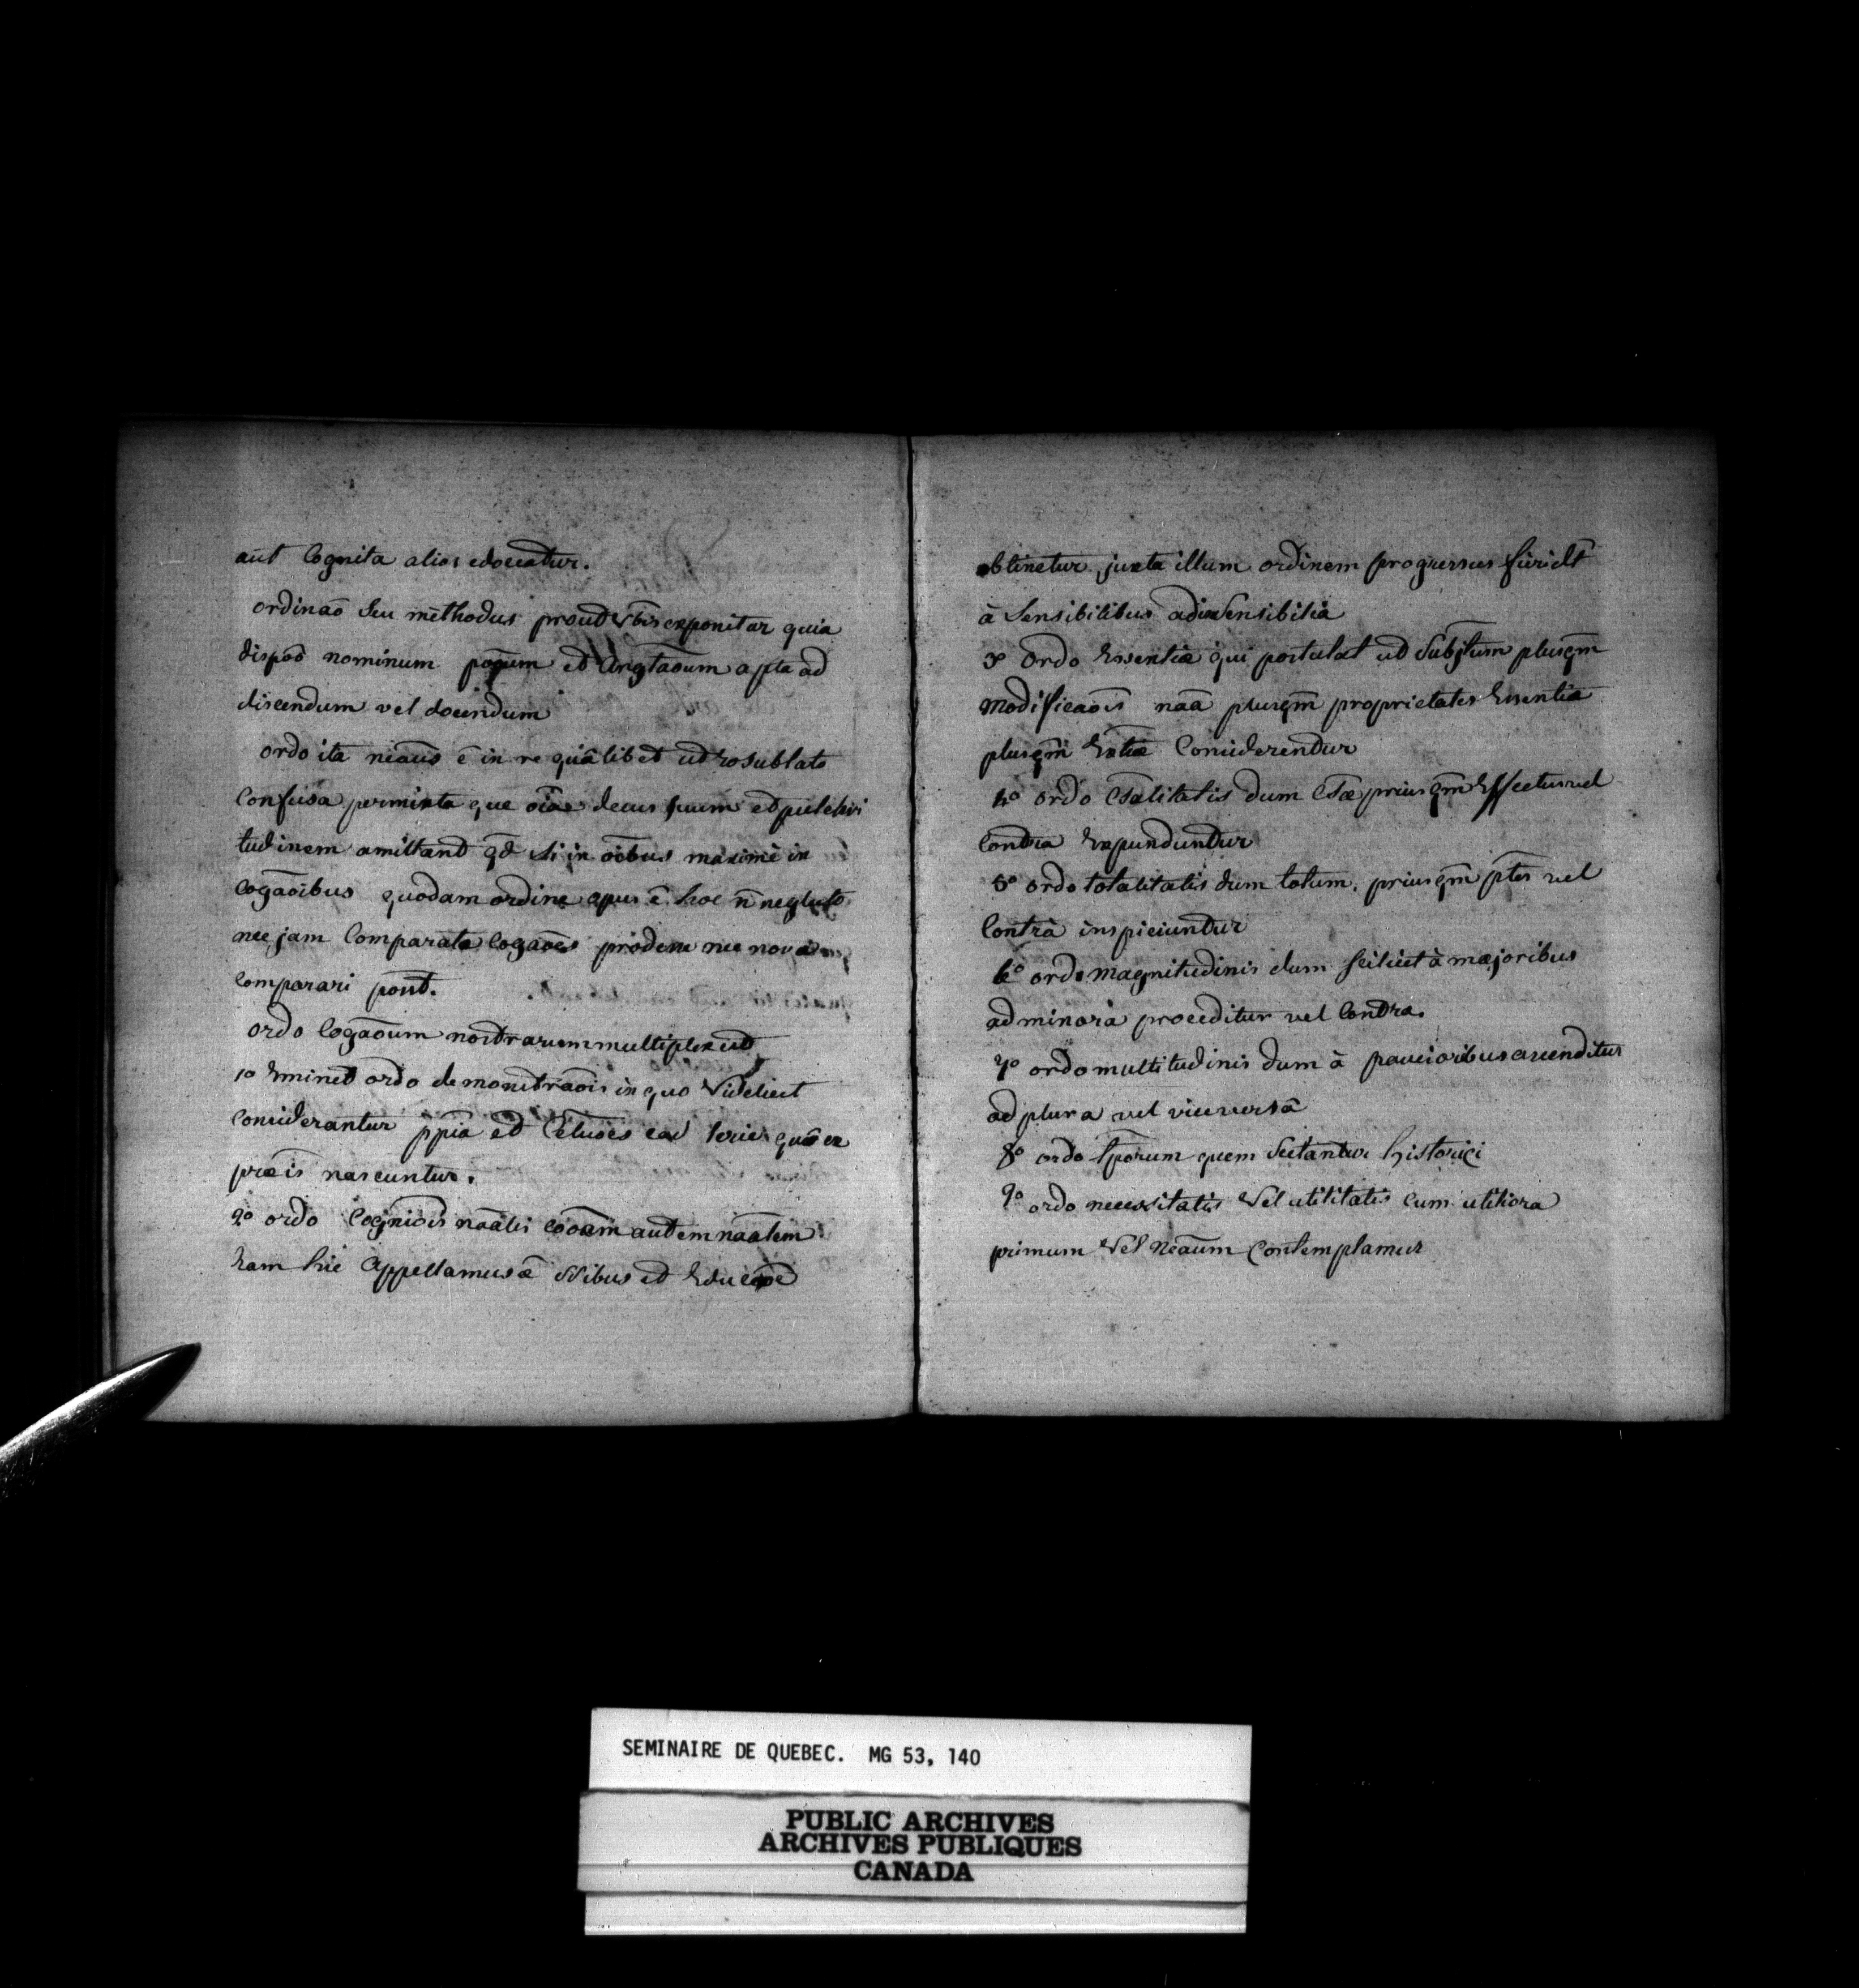 aut Cognita alios edoceatur.
ordinaō Seu methodus prout vbis exponitur quia
dispoō nominum poōum et Argtaōum apta ad
discendum vel docendum
ordo ita neāus ē in re quâlibet ut eo sublato
Confusa permixta que oīa decus suum et pulchri
tudinem amittant qd si in oībus maximè in
Cogāoibus quodam ordine opus ē hoc n̄ neglecto
nec jam Comparatæ Cogaōes prodesse nec novæ
comparari posst.
ordo Cogaōum nostrarum multiplex est
1º Eminet ordo demonstraōis in quo Videlicet
considerantur ppia et Cclusiōes eâ serie quâ ex
præīs nascuntur.
2º ordo Cogniōis nāalis eōoām autem nāalem
hic Appellamus ē ssibus et Educaōe
obtinetur juxta illum ordinem progressus
à Sensibilibus ad insensibilia
3º Ordo Essentiæ qui postulat ut Subjtum plusqm̄
Modificaōis nāa plusqm̄ proprietates Essentia
plusqm̄ Considerentur
4º ordo Csālitatis dum Csāe priusqm̄ Effectus vel
Contra Expenduntur
5º ordo totalitatis dum totum priusqm̄ ptes vel
Contrà inspiciuntur
6º ordo magnitudinis dum scilicet à majoribus
ad minora proceditur vel Contra.
7º ordo multitudinis dum à paucioribus ascenditur
ad plura vel viceversâ
8º ordo tp̄orum quem Sectantur historici
9º ordo necessitatis Vel utilitatis cum utiliora
primum Vel Neāum Contemplamur
SEMINAIRE DE QUEBEC. MG 53, 140
PUBLIC ARCHIVES
ARCHIVES PUBLIQUES
CANADA